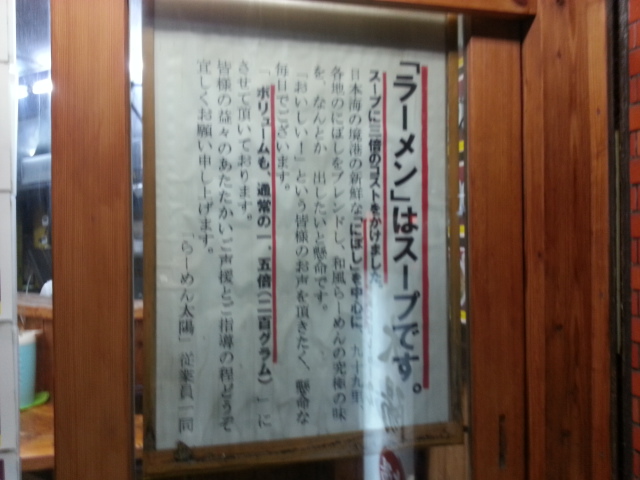 「ラーメン」はスープです。
スープに三倍のコストをかけました。
日本海の境港の新鮮な「にぼし」を中心に、九十九里、
各地のにぼしをブレンドし、和風らーめんの究極の味
を、なんとか、出したいと懸命です。
「おいしい!」という皆様のお声を頂きたく、懸命な
毎日でございます。
「ボリュームも、通常の一、五倍(二百グラム)」に
させて頂いております。
皆様の益々のあたたかいご声援とご指導の程どうぞ
宜しくお願い申し上げます。
「らーめん太陽」従業員一同